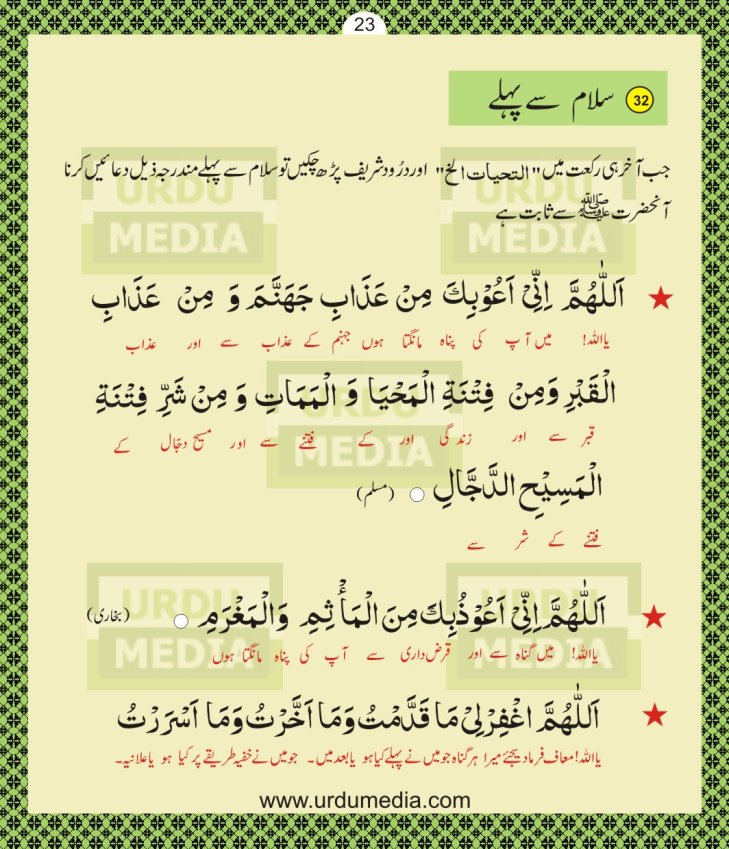 23
32 سلام سے پہلے
جب آخر ہی رکعت میں "التحیات الخ" اور درُود شریف پڑھ چکیں تو سلام سے پہلے مندرجہ ذیل دعائیں کرنا
آنحضرت ﷺ سے ثابت ہے
اَللّٰهُمَّ اِنِّیْ اَعُوْبِكَ مِنْ عَذَابِ جَهَنَّمَ وَ مِنْ عَذَابِ
یا اللہ! میں آپ کی پناہ مانگتا ہوں جہنم کے عذاب سے اور عذاب
الْقَبْرِ وَمِنْ فِتْنَةِ الْمَحْيَا وَ الْمَمَاتِ وَ مِنْ شَرِّ فِتْنَةِ
قبر سے اور زندگی اور کے فتنے سے اور مسیح دجّال کے
الْمَسِيْحِ الدَّجَّالِ ○ (مسلم)
فتنے کے شر سے
اَللّٰهُمَّ اِنِّیْ اَعُوْذُبِكَ مِنَ الْمَأْثِمِ وَالْمَغْرَمِ ○ (بخاری)
یا اللہ! میں گناہ سے اور قرض داری سے آپ کی پناہ مانگتا ہوں
اَللّٰهُمَّ اغْفِرْلِیْ مَا قَدَّمْتُ وَمَا اَخَّرْتُ وَمَا اَسْرَرْتُ
یا اللہ! معاف فرما دیجئے میرا ہر گناہ جو میں نے پہلے کیا ہو یا بعد میں۔ جو میں نے خفیہ طریقے پر کیا ہو یا علانیہ۔
www.urdumedia.com
URDU MEDIA
URDU MEDIA
URDU MEDIA
URDU MEDIA
URDU MEDIA